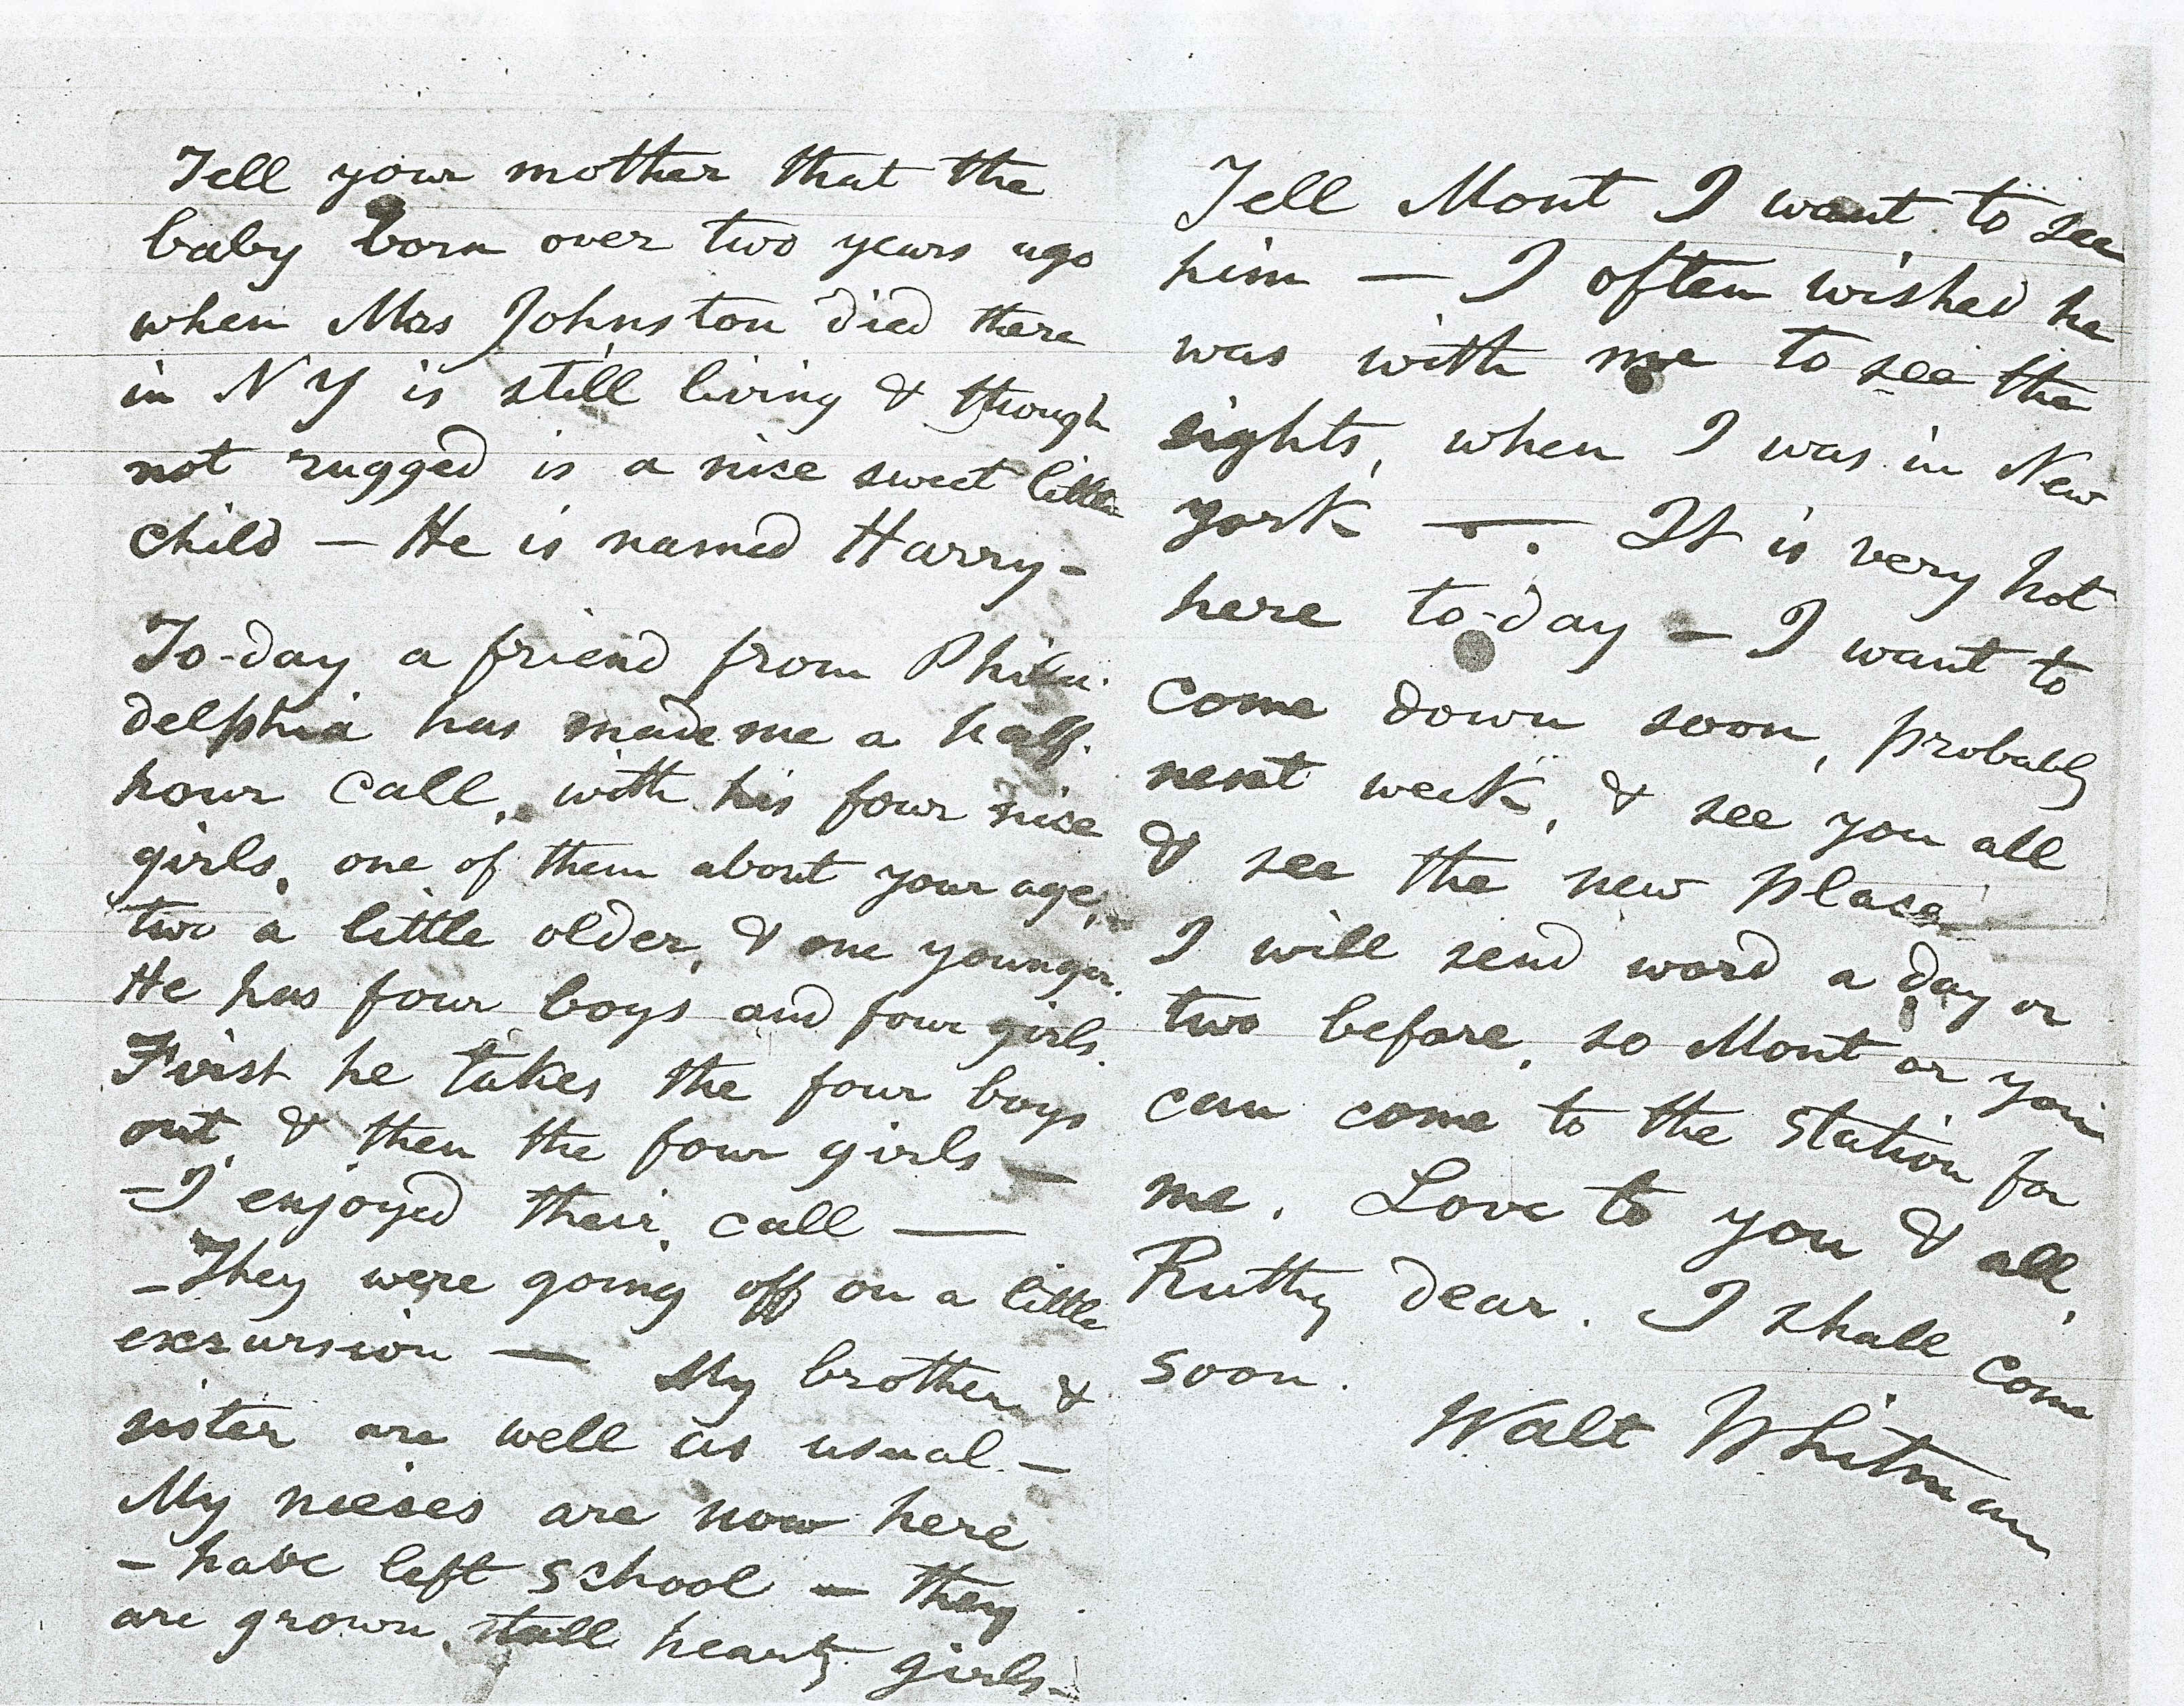 Tell your mother that the
baby born over two years ago
when Mrs Johnston died there
in N Y is still living & though
not rugged is a nice sweet little
child — He is named Harry –
To-day a friend from Phila-
delphia has made me a half-
hour call, with his four nice
girls, one of them about your age,
two a little older, & one younger.
He has four boys and four girls.
First he takes the four boys
out, & then the four girls —
– I enjoyed their call —
– They were going off on a little
excursion — My brother &
sister are well as usual –
My nieces are now here
– have left school — they
are grown, tall hearty girls –
Tell Mont I want to see
him — I often wished he
was with me to see the
sights, when I was in New
york —. It is very hot
here to-day – I want to
come down soon, probably
next week, & see you all
& see the new place
I will send word a day or
two before, so Mont or you
can come to the station for
me. Love to you & all,
Ruthy dear. I shall come
soon.
Walt Whitman